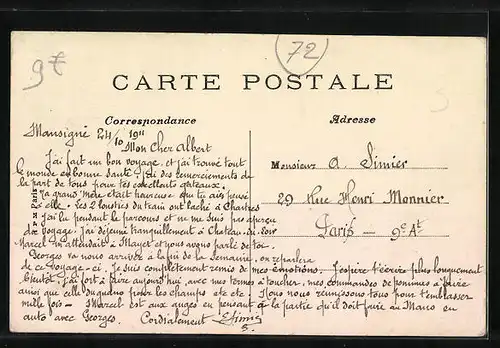 9€
72
CARTE POSTALE
Correspondance
Adresse
Mansigné 24/10 1911
Mon Cher Albert
J'ai fait un bon voyage, et j'ai trouvé tout
le monde en bonne santé. J'ai des remerciements de
la part de tous pour tes excellents gâteaux.
Ma grand'mère était heureuse que tu aies pensé
à elle. Les 2 loustics du train ont laché à Chartres
J'ai lu pendant le parcours et ne me suis pas aperçu
du voyage. J'ai déjeuné tranquillement à Chateau-du-Loir
Marcel m'attendait à Mayet et nous avons parlé de toi.
Georges va nous arriver à la fin de la semaine, on reparlera
de ce voyage-ci. Je suis complètement remis de mes émotions. J'espère t'écrire plus longuement
bientôt, j'ai fort à faire aujourd'hui, avec mes termes à toucher, mes commandes de pommes à faire
ainsi que celle du pour les champs etc etc. Nous nous réunissons tous pour t'embrasser
mille fois - Marcel est aux anges en pensant à la partie qu'il doit faire au Mans en
auto avec Georges. Cordialement
Monsieur A. Simier
29 Rue Henri Monnier
Paris - 9e At
Paris